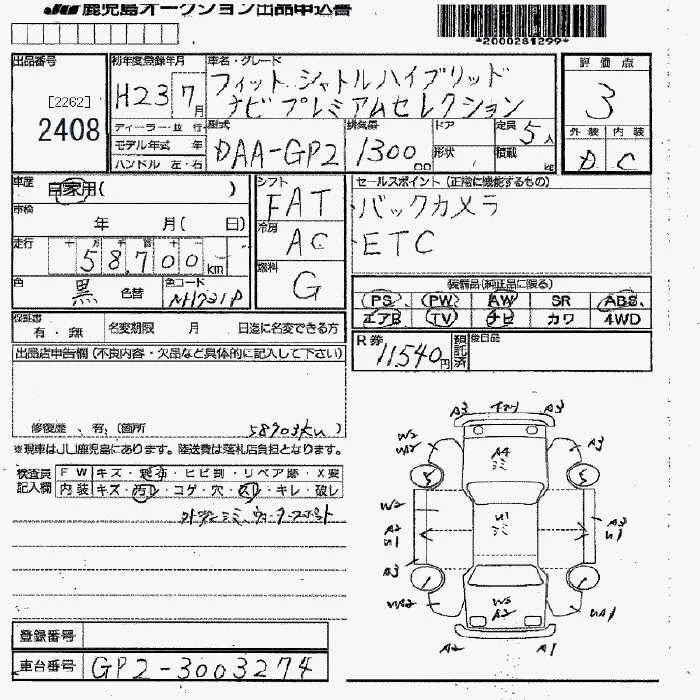 JU 鹿児島オークション出品申込書
*2000281299*
出品番号
[2262]
2408
初年度登録年月
H23 7月
ディーラー・並行
モデル年式 年
ハンドル 左・右
車名・グレード
フィットシャトルハイブリッド
ナビプレミアムセレクション
型式
DAA-GP2
排気量
1300cc
ドア
形状
定員 5人
積載 kg
評価点
3
外装 内装
D C
車歴 自家用( )
車検 年 月( 日)
走行 十 万 千 百 十
58,700 km
色 黒 色替
色コード NH731P
シフト
FAT
冷房
AC
燃料
G
セールスポイント(正常に機能するもの)
バックカメラ
ETC
装備品(純正品に限る)
PS PW AW SR ABS
エアB TV ナビ カワ 4WD
保証書 有・無
名変期限 月 日迄に名変できる方
R券 11,540円
預託済
後日品
出品店申告欄(不良内容・欠品など具体的に記入して下さい)
修復歴 有(箇所 58703km)
※現車はJU鹿児島にあります。陸送費は落札店負担となります。
検査員記入欄
FW キズ・飛石・ヒビ割・リペア跡・X要
内装 キズ・汚れ・コゲ・穴・スレ・キレ・破レ
A3 A3
W2 A3
A4
ミミ
S S
W2 U1
ミミ
A2 A3
U1 U1
A3
W3
A2
UA1
A2 A1
登録番号
車台番号 GP2-3003274